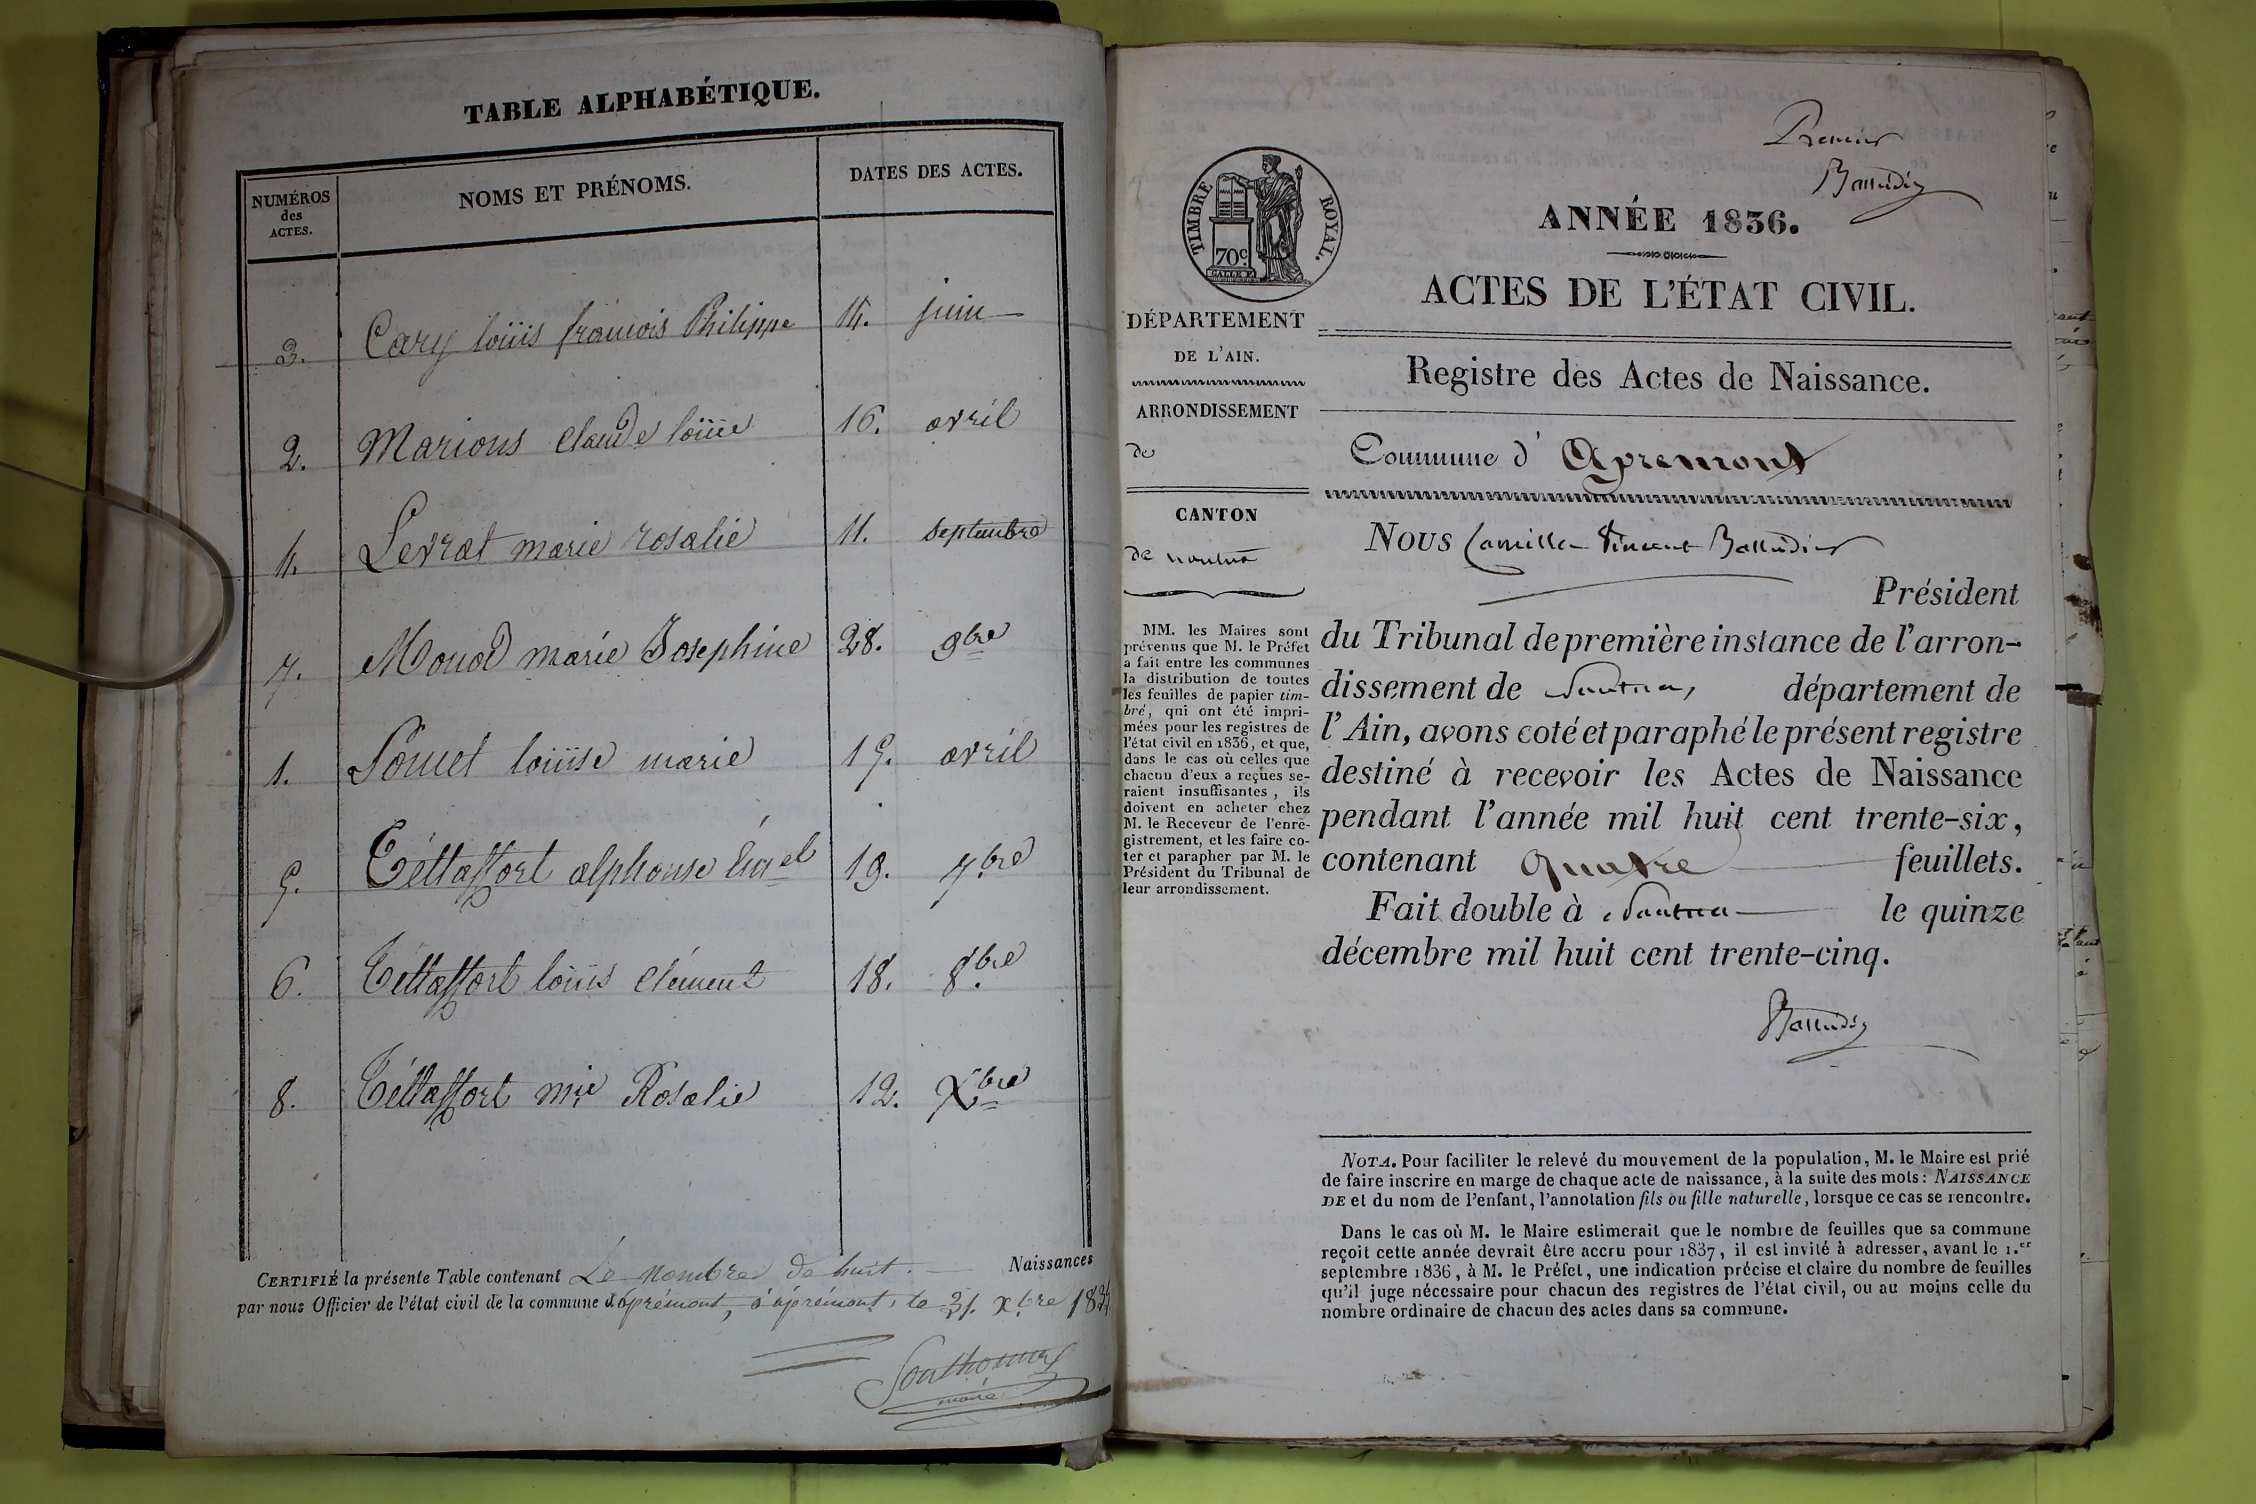 TABLE ALPHABÉTIQUE.
NUMÉROS des ACTES. NOMS ET PRÉNOMS. DATES DES ACTES.
3. Cary loüis francois Philippe 14. juin
2. Marions claude loüise 16. avril
4. Levrat marie rosalie 11. septembre
7. Monod marie Josephine 28. 9bre
1. loüise marie 15. avril
5. Téttaffort alphonse 19. 7bre
6. Téttaffort loüis clément 18. 8bre
8. Téttaffort mie Rosalie 12. Xbre
CERTIFIÉ la présente Table contenant Le nombre de huit. Naissances
par nous Officier de l'état civil de la commune d'apremont, à apremont, le 31. xbre
maire
Premier
TIMBRE ROYAL.
70c.
ANNÉE 1836.
ACTES DE L'ÉTAT CIVIL.
DÉPARTEMENT
DE L'AIN.
Registre des Actes de Naissance.
ARRONDISSEMENT
de
Commune d' Apremont
CANTON
de nantua
Nous Camille Vincent
Président
du Tribunal de première instance de l'arron-
dissement de Nantua, département de
l'Ain, avons coté et paraphé le présent registre
destiné à recevoir les Actes de Naissance
pendant l'année mil huit cent trente-six,
contenant quatre feuillets.
Fait double à Nantua le quinze
décembre mil huit cent trente-cinq.
MM. les Maires sont
prévenus que M. le Préfet
a fait entre les communes
la distribution de toutes
les feuilles de papier tim-
bré, qui ont été impri-
mées pour les registres de
l'état civil en 1836, et que,
dans le cas où celles que
chacun d'eux a reçues se-
raient insuffisantes, ils
doivent en acheter chez
M. le Receveur de l'enre-
gistrement, et les faire co-
ter et parapher par M. le
Président du Tribunal de
leur arrondissement.
NOTA. Pour faciliter le relevé du mouvement de la population, M. le Maire est prié
de faire inscrire en marge de chaque acte de naissance, à la suite des mots : NAISSANCE
DE et du nom de l'enfant, l'annotation fils ou fille naturelle, lorsque ce cas se rencontre.
Dans le cas où M. le Maire estimerait que le nombre de feuilles que sa commune
reçoit cette année devrait être accru pour 1837, il est invité à adresser, avant le 1.er
septembre 1836, à M. le Préfet, une indication précise et claire du nombre de feuilles
qu'il juge nécessaire pour chacun des registres de l'état civil, ou au moins celle du
nombre ordinaire de chacun des actes dans sa commune.